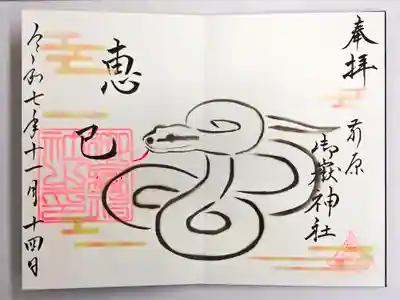 奉拝
前原
御嶽神社
恵巳
令和七年十一月十四日